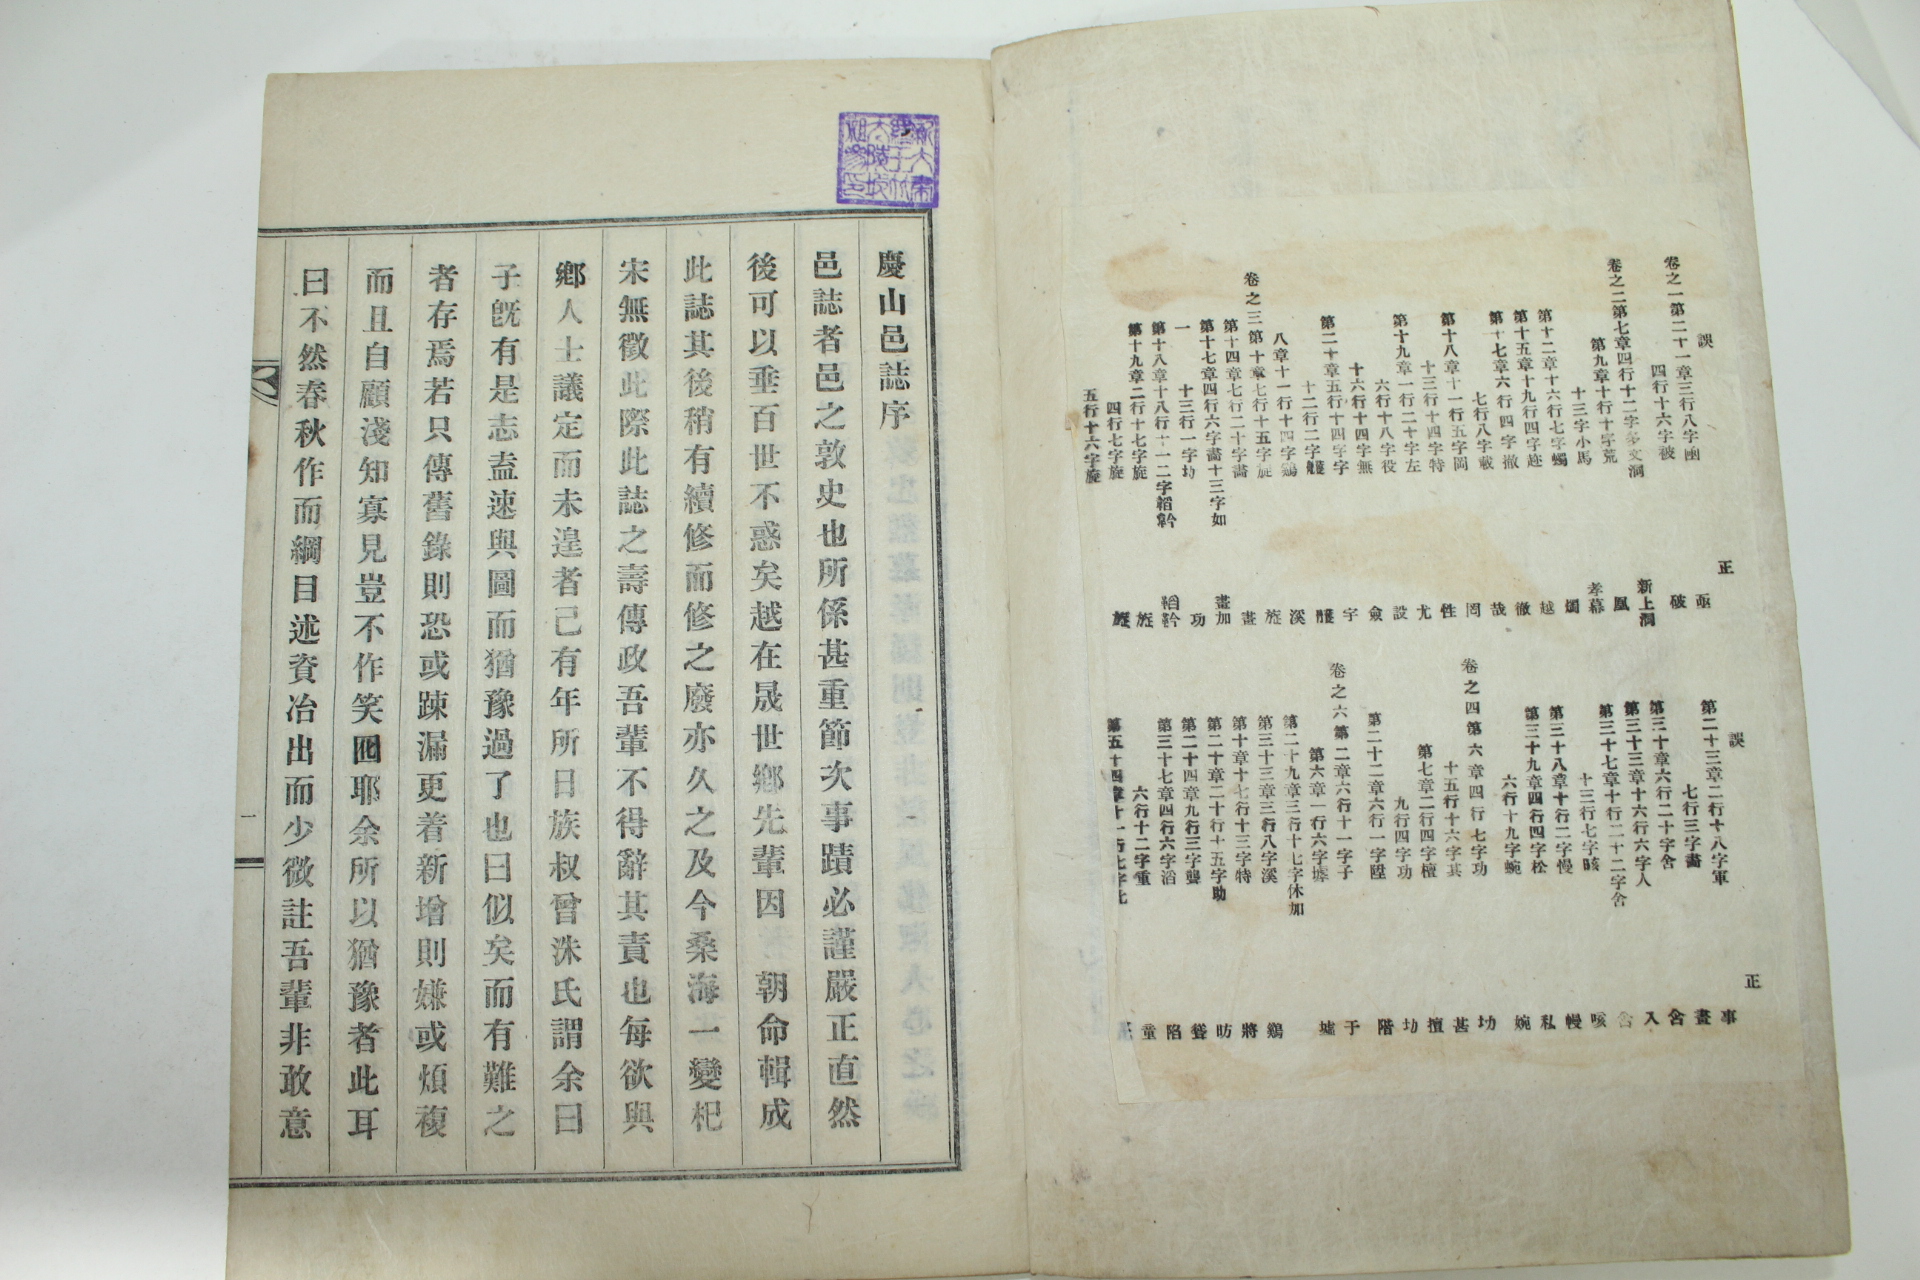 誤
卷之一第二十一章三行八字凾
四行十六字被
卷之二第七章四行十二字多文洞
第九章十行十字荒
十三字小馬
第十二章十六行七字蠋
第十五章十九行四字趂
第十七章六行四字撤
七行八字載
第十八章十一行五字岡
十三行十四字特
第十九章一行二十字左
六行十八字役
十六行十四字無
第二十章五行十四字字
十二行二字
八章十一行十四字鷄
卷之三第十章七行十五字旋
第十四章七行二十字畵
第十七章四行六字畵十三字如
一 十三行一字功
第十八章十八行十一二字韜幹
第十九章二行十七字旋
四行七字旋
五行十六字旋
正
亟
破
新上洞
凰
孝幕
燭
越
徹
哉
罔
性
尤
設
僉
字
溪
旌
畫
畫加
功
旌
旌
誤
第二十三章二行十八字軍
七行三字畵
第三十章六行二十字舍
第三十三章十六行六字人
第三十七章十行二十二字舍
十三行七字咳
第三十八章十行二字慢
第三十九章四行四字松
六行十九字蜿
卷之四第六章四行七字功
十五行十六字其
第七章二行四字檀
九行四字功
第二十二章六行一字陞
卷之六第二章六行十一字子
第六章一行六字墟
第二十九章三行十七字休加
第三十三章三行八字溪
第十章十七行十三字特
第二十章二十行十五字助
第二十四章九行三字龔
第三十七章四行六字滔
六行十二字重
第五十四章十一行七字北
正
事
畫
舍
入
舍
咳
幔
私
婉
功
甚
擅
功
階
于
墟
鷄
將
昉
養
陷
童
正
慶山邑誌序
邑誌者邑之敦史也所係甚重節次事蹟必謹嚴正直然
後可以垂百世不惑矣越在晟世鄕先輩因 朝命輯成
此誌其後稍有續修而修之廢亦久之及今桑海一變杞
宋無徵此際此誌之壽傳政吾輩不得辭其責也每欲與
鄕人士議定而未遑者己有年所日族叔曾洙氏謂余曰
子旣有是志盍速與圖而猶豫過了也曰似矣而有難之
者存焉若只傳舊錄則恐或踈漏更着新增則嫌或煩複
而且自顧淺知寡見豈不作笑囮耶余所以猶豫者此耳
曰不然春秋作而綱目述資冶出而少微註吾輩非敢意
一